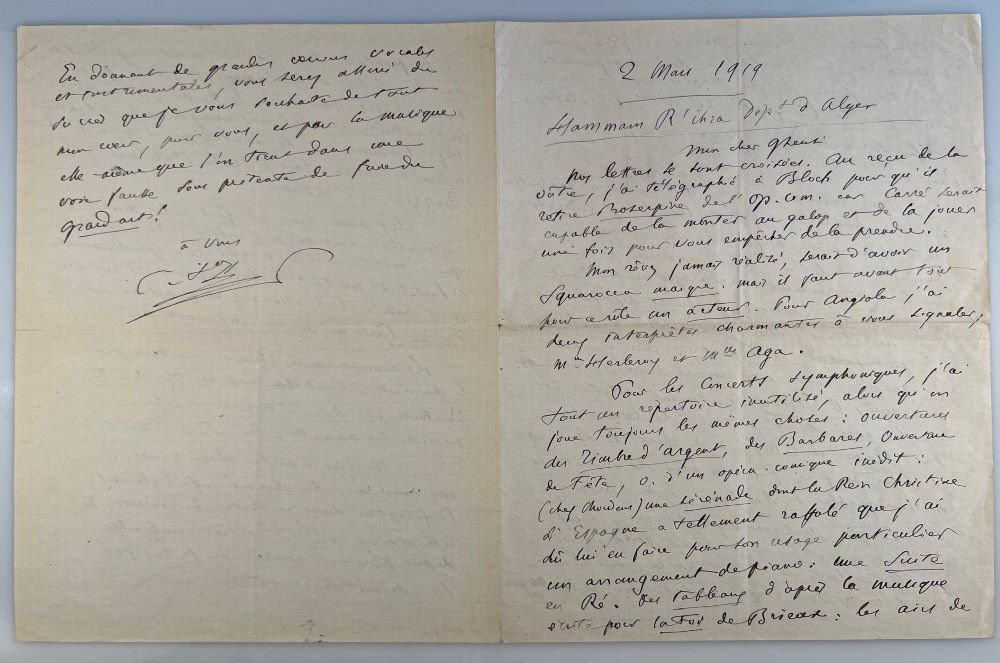 2 Mars 1919
Hammam R'ihra Dépt d'Alger
Mon cher Gheusi
Nos lettres se sont croisées. Au reçu de la
vôtre, j'ai télégraphé à Bloch pour qu'il
retire Proserpine de l'Op. com. car Carré serait
capable de la monter au galop et de la jouer
une fois pour vous empêcher de la prendre.
Mon rêve, jamais réalisé, serait d'avoir un
Squarocca maigre. mais il faut avant tout
pour ce rôle un acteur. Pour Angiola j'ai
deux interprètes charmantes à vous signaler,
Mme Herleroy et Mlle Aga.
Pour les Concerts symphoniques, j'ai
tout un répertoire inutilisé, alors qu'on
joue toujours les mêmes choses : ouvertures
du Timbre d'argent, des Barbares, Ouverture
de Fête, O. d'un opéra-comique inédit :
(chez Choudens) une Sérénade dont la Reine Christine
d'Espagne a tellement raffolé que j'ai
dû lui en faire pour son usage particulier
un arrangement de piano : une Suite
en Ré. Des tableaux d'après la musique
écrite pour la Foi de Brieux : les airs de
En donnant de grandes œuvres vocales
et instrumentales, vous serez assuré du
succès que je vous souhaite de tout
mon cœur, pour vous, et pour la musique
elle-même que l'on tient dans une
voie fausse sous prétexte de faire du
grand art !
à vous